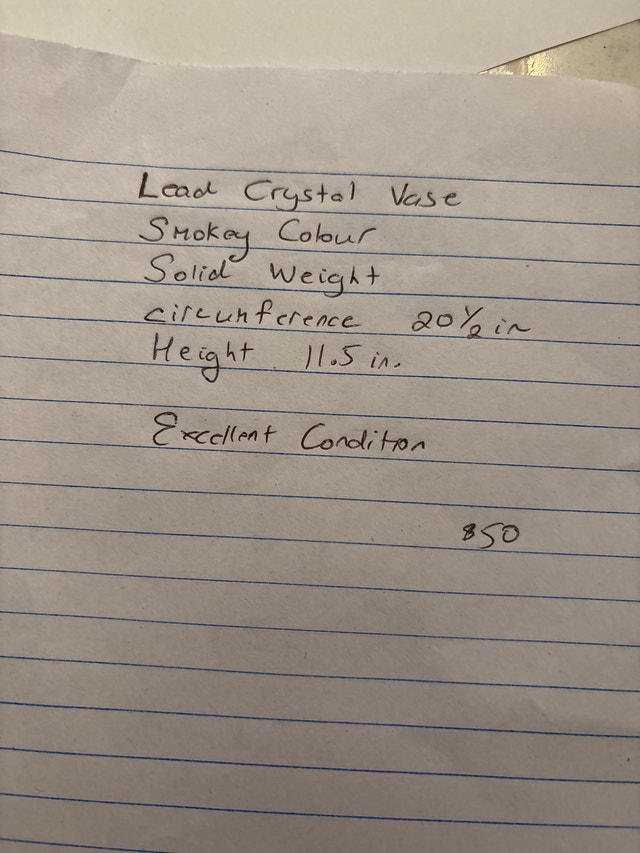 Lead Crystal Vase
Smokey Colour
Solid Weight
circunference 20 1/2 in
Height 11.5 in.
Excellent Condition
$50